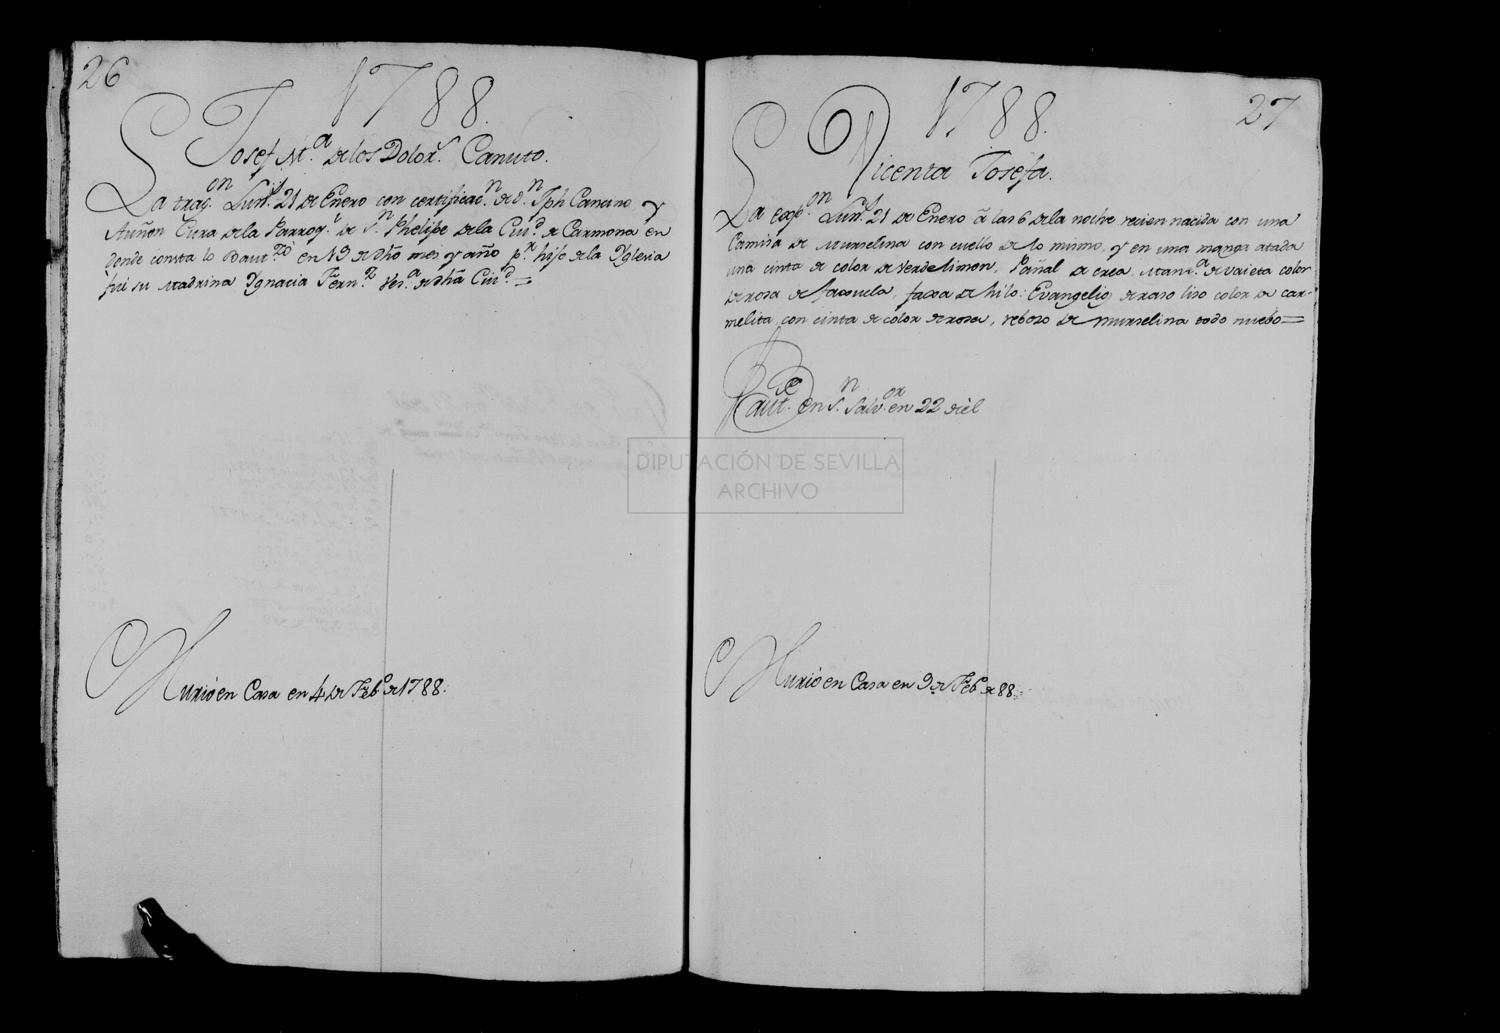 26
1788.
Josef M.ª de los Dolor.s Canuto.
La trag.on Lun.s 21 de Enero con certificac.n de d.n Jph Cancino y
Auñen Cura de la Parroq.l de S.n Phelipe de la Ciu.d de Carmona en
donde consta lo Baut.zo en 19 de dho mes y año p.r hijo de la Yglesia
fui su Madrina Ygnacia Fern.z Ves.ª de dha Ciu.d =
Murio en Casa en 4 de Feb.o de 1788.
1788.
27
Vicenta Josefa.
La exp.on Lun.s 21 de Enero á las 6 de la noche recien nacida con una
Camisa de Murselina con cuello de lo mismo, y en una manga atada
una cinta de color de Verdelimon, Pañal de crea, Mant.ª de vaieta color
de rosa de faxuela, faxa de hilo: Evangelio de raso liso color de car-
melita con cinta de color de rosa, reboso de murselina todo nuebo =
Baut. en S.n Salv.or en 22 del
Murio en Casa en 9 de Feb.o de 88.
DIPUTACIÓN DE SEVILLA
ARCHIVO